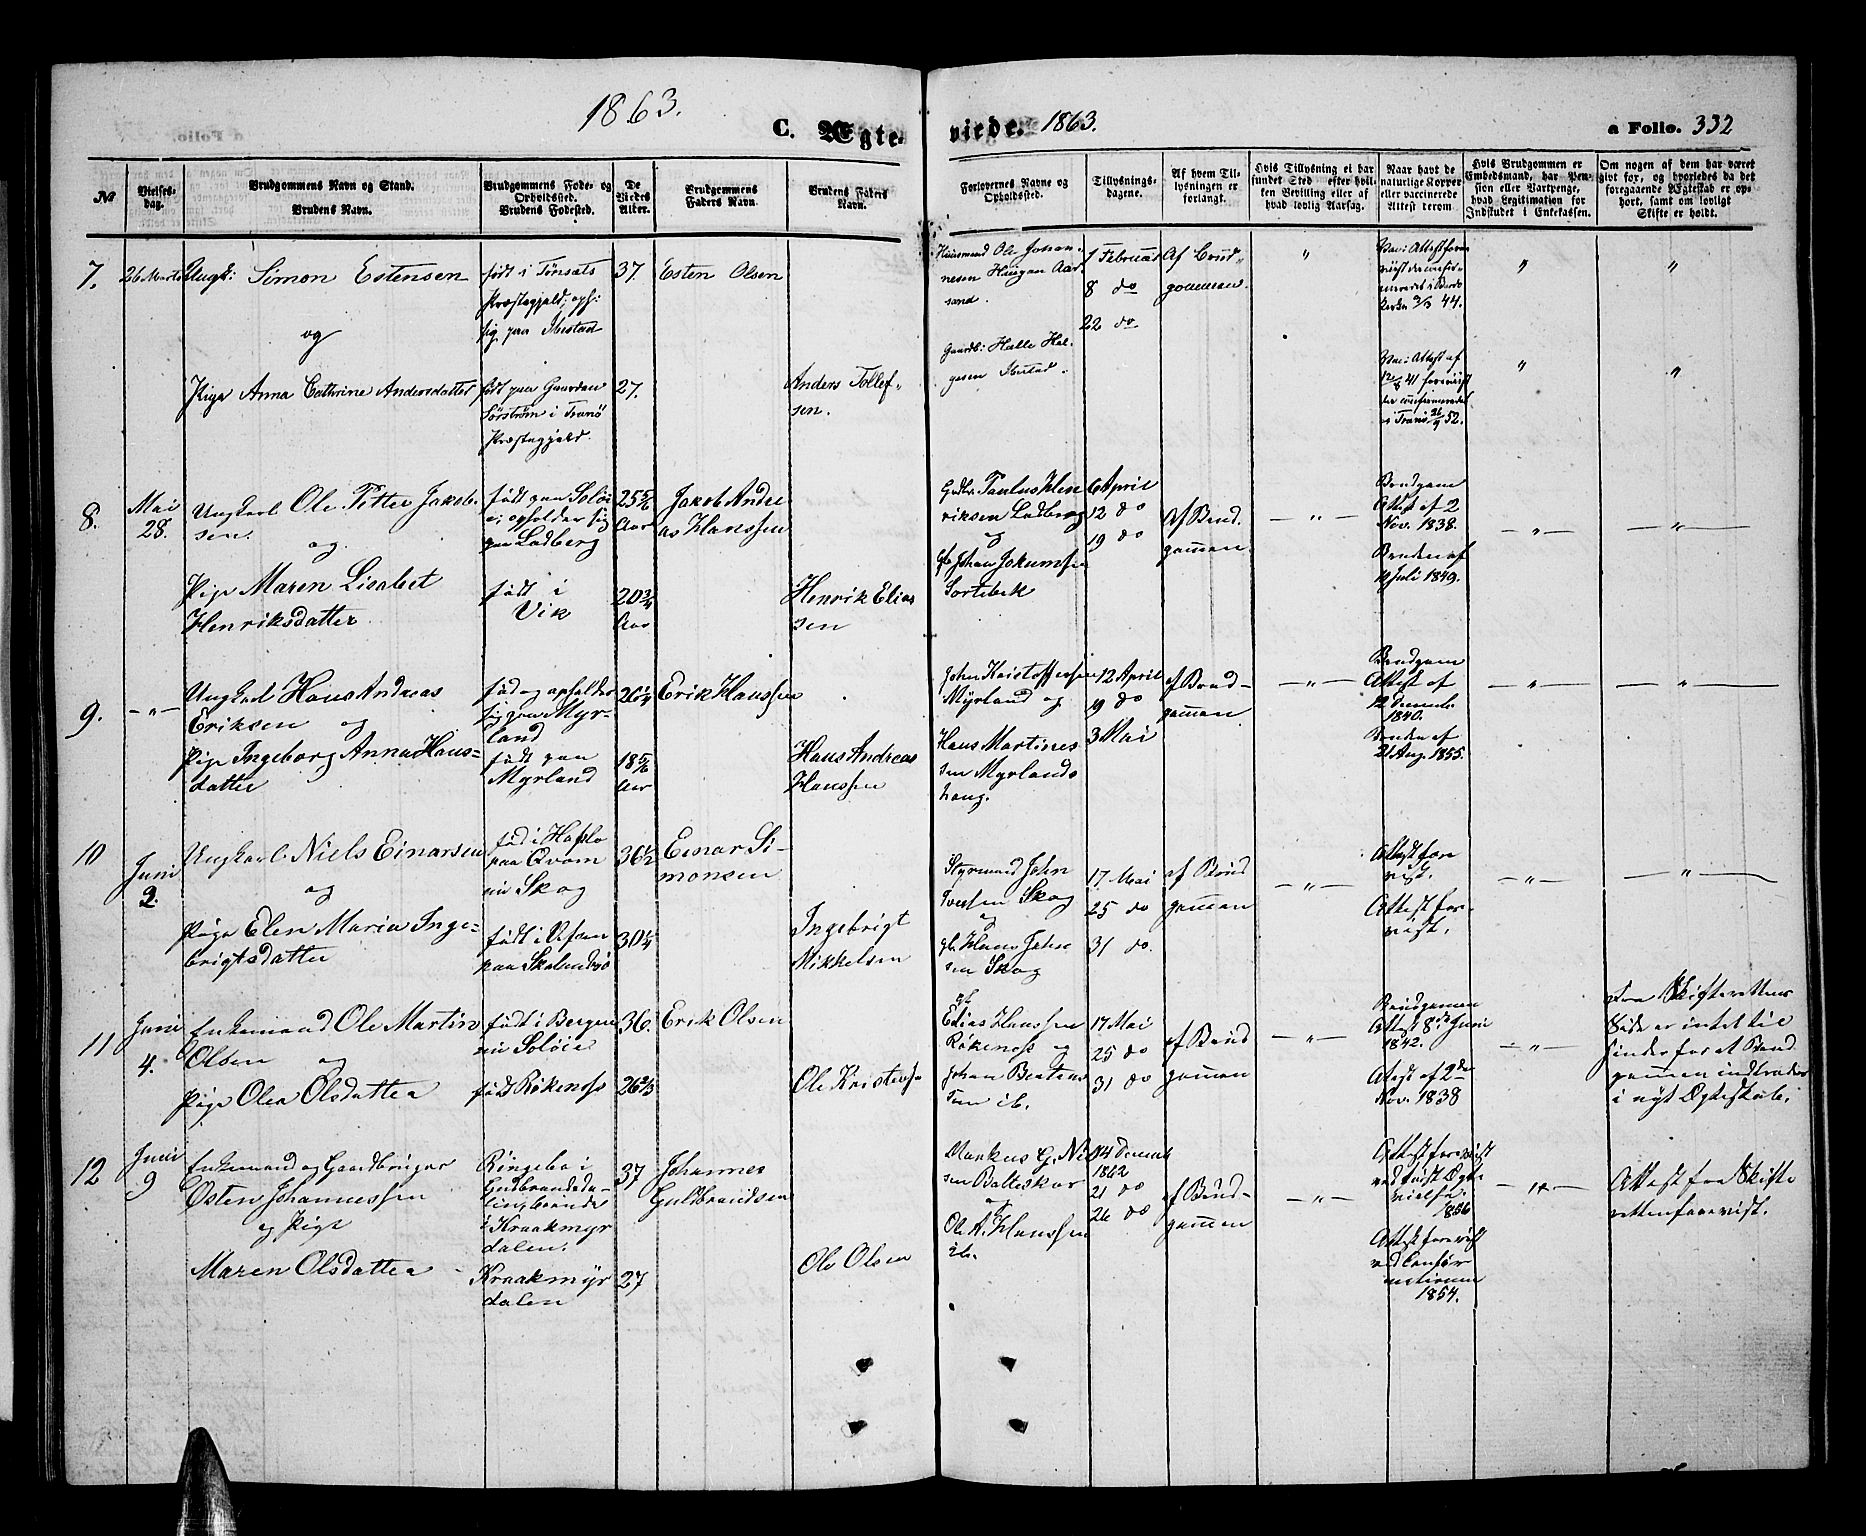 1863.
C. Ægte-
viede. 1863.
a Folio. 332
№
Vielses-
dag.
Brudgommens Navn og Stand.
Brudens Navn.
Brudgommens Føde- og
Opholdssted.
Brudens Fødested.
De
Viedes
Alter.
Brudgommens
Faders Navn.
Brudens Faders
Navn.
Forlovernes Navne og
Opholdssted.
Tillysnings-
dagene.
Af hvem Til-
lysningen er
forlangt.
Hvis Tillysning ei har
fundet Sted efter hvil-
ken Bevilling eller af
hvad lovlig Aarsag.
Naar havt de
naturlige Kopper
eller vaccinerede
Attest derom.
Hvis Brudgommen er
Embedsmand, har Pen-
sion eller Vartpenge,
hvad Legitimation for
Indskudet i Enkekassen.
Om nogen af dem har været
givt før, og hvorledes da det
foregaaende Ægteskab er op-
hørt, samt om lovligt
Skifte er holdt.
7.
26 Marts
Ungk: Simon Estensen
og
Pige Anna Cathrine Andersdatter
født i Tønsæts
Præstegjeld, oph:
sig paa Ibestad
født paa Gaarden
Sørstrøm i Tranø
Præstegjeld.
37.
27.
Esten Olsen
Anders Tollef-
sen.
Huusmand Ole Johan-
nesen Haugen Aar-
sand.
Gaardb: Halle Hal-
gesen Ibestad.
1 Februar
8 do
22 do
Af Brud-
gommen.
"
Vac: Attest fore-
vist
44.
Vac: Attest af
12/8 41 forevist
der confirmeret
i Tranø 26/9 52.
"
"
8.
Mai
28.
Ungkarl Ole Petter Jakob-
sen.
og
Pige Maren Lisabet
Henriksdatter
født paa Soløi
opholder sig
paa Ladberg
født i
Vik
25 5/6
Aar
20 3/4
Aar
Jakob Andre
as Hanssen
Henrik Elias
sen
Paulus Hen
riksen Ladberg
og
Johan Jokumsen
Sortebek
6 April
12 do
19 do
af Brud-
gommen.
— " —
Brudgom
Attest af 2
Nov. 1838.
Bruden af
Juli 1849.
— " —
— " —
9.
— " —
Ungkarl Hans Andreas
Eriksen og
Pige Ingeborg Anna Hans-
datter
fød og opholder
sig paa Myr-
land
født paa
Myrland
26 1/4
18 5/6
Aar
Erik Hanssen
Hans Andreas
Hanssen
John Kristoffersen
Myrland og
Hans Martines
sen Myrlands
haug.
12 April
19 do
3 Mai
af Brud-
gommen
— " —
Brudgom
Attest af
12 Decemb.
1840.
Bruden af
21 Aug. 1855.
— " —
— " —
10
Juni
2.
Ungkarl Niels Einarsen
og
Pige Elen Maria Inge-
brigtsdatter
fød i Hafslo
paa Qvam
nu Skog
født i
paa
36 1/2
30 1/4
Einar Si-
monsen
Ingebrigt
Mikkelsen
Styrmand John
Iversen Skog
og
gb. Hans John
sen Skog
17 Mai
25 do
31 do.
af Brud
gommen
— " —
Attest fore
vist.
Attest fore-
vist.
— " —
— " —
11
Juni
4.
Enkemand Ole Martin
Olsen og
Pige Olea Olsdatter
født i Bergen
nu Soløie
født Røkenæs
36.
26 2/3
Erik Olsen
Ole Kristensen
gb.
Elias Hanssen
Røkenæs og
Johan Berteus
Tun ib.
17 Mai
25 do
31 do
af Brud
gommen
— " —
Brudgommen
Attest 8de Juni
1842.
Attest af 2den
Nov. 1838
— " —
Fra Skifterettens
Side er intet til
hinder for at Brud
gommen indtræder
i nyt Ægteskab.
12
Juni
9
Enkemand og Gaardbruger
Østen Johannessen
og Pige
Maren Olsdatter
Ringebo i
Gudbrandsda-
len, boende
i Kraakmyr
dalen.
Kraakmyr
dalen
37
27
Johannes
Gulbrandsen
Ole Olsen
Markus G. Niel
sen Balteskar
og
Ole A. Hanssen
ib.
14 Decemb
1862
21 do
26 do
af Brud-
gommen
— " —
Attest forevist
ved første Ægte
vielse.
1856
Attest forevist
ved Confir
mationen
1854.
— " —
Attest fra Skifte
retten forevist.